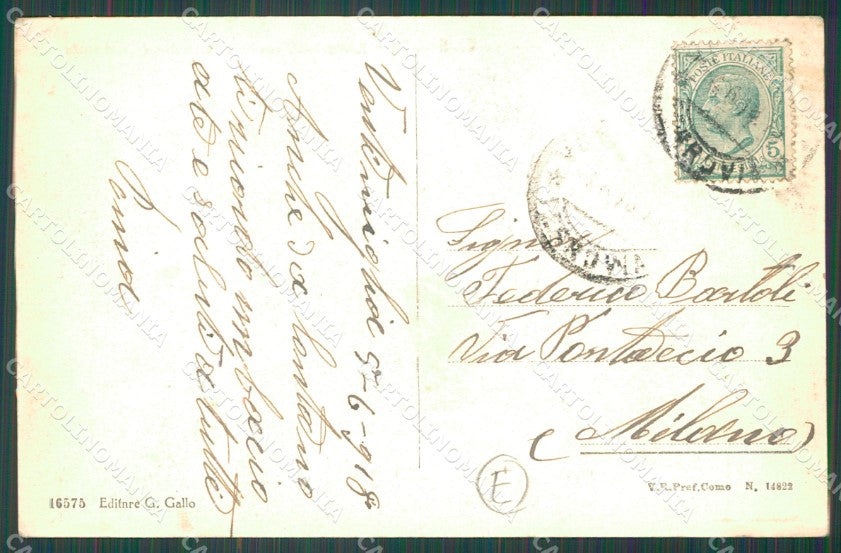 Ventimiglia 5-6-918
Anche da lontano
ti ricordo un bacio
a te e saluti a tutti
Signor
Federico Bartoli
Via Pontaccio 3
(Milano)
POSTE ITALIANE
5
E
16575 Editore G. Gallo
V.R.Pref.Como N. 14822
CARTOLINOMANIA